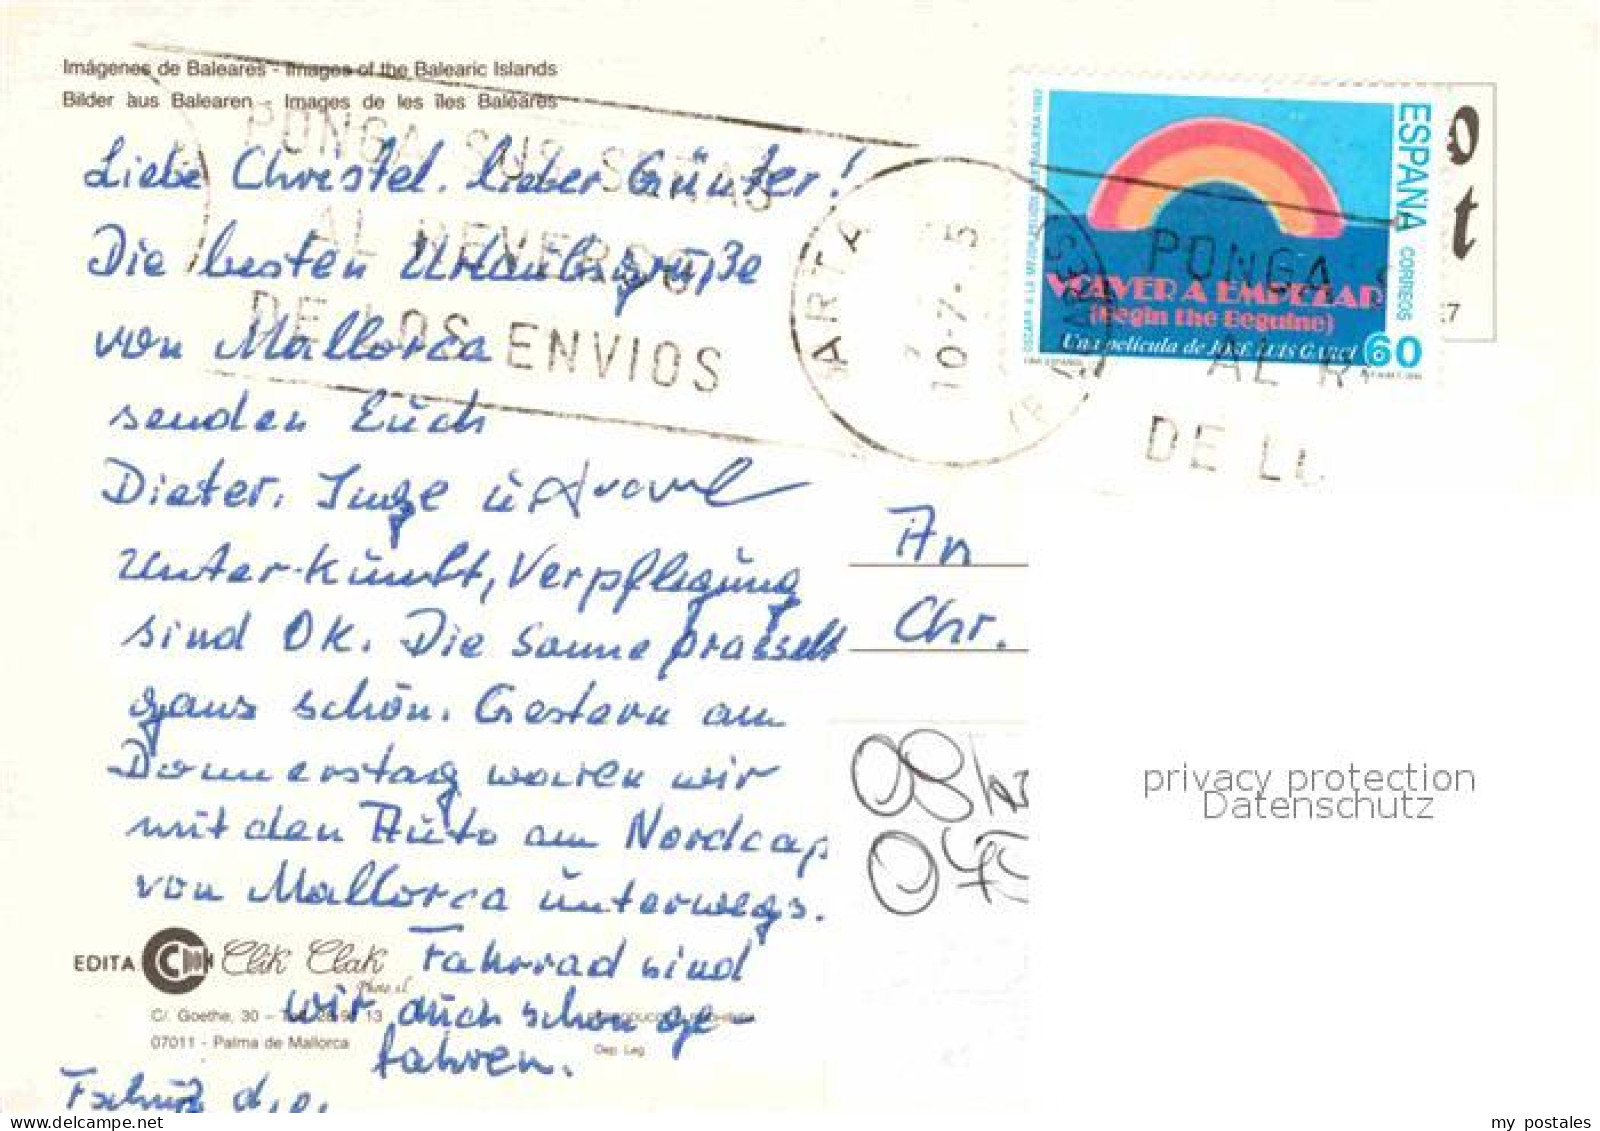 Imágenes de Baleares - Images of the Balearic Islands
Bilder aus Balearen - Images de les îles Baléares
PONGA SUS SEÑAS
AL REVERSO
DE LOS ENVIOS
Liebe Christel. lieber Günter!
Die besten Urlaubsgrüße
von Mallorca
senden Euch
Dieter. Inge u
Unterkunft, Verpflegung
sind OK. Die Sonne prasselt
ganz schön. Gestern am
Donnerstag waren wir
mit den Auto am Nordcap
von Mallorca unterwegs.
Fahrrad sind
wir auch schon ge-
fahren.
EDITA Clik Clak
Photo s.l.
C/. Goethe, 30 -
07011 - Palma de Mallorca
Dep. Leg.
ARTA
10-7-
ESPAÑA CORREOS
VOLVER A EMPEZAR
(Begin the Beguine)
Una película de JOSE LUIS GARCI
60
PONGA
AL R
DE L
An
Chr.
privacy protection
Datenschutz
my postales
www.delcampe.net